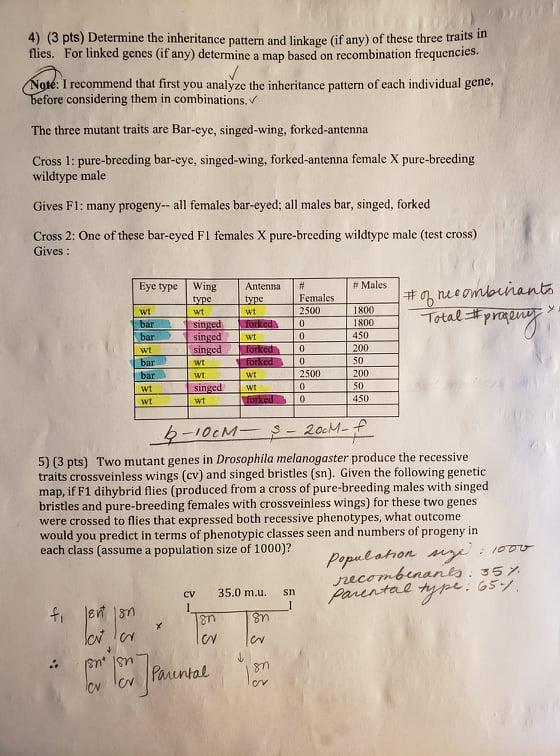 4) (3 pts) Determine the inheritance pattern and linkage (if any) of these three traits in
flies. For linked genes (if any) determine a map based on recombination frequencies.
Note: I recommend that first you analyze the inheritance pattern of each individual gene,
before considering them in combinations. ✓
The three mutant traits are Bar-eye, singed-wing, forked-antenna
Cross 1: pure-breeding bar-eye, singed-wing, forked-antenna female X pure-breeding
wildtype male
Gives F1: many progeny-- all females bar-eyed; all males bar, singed, forked
Cross 2: One of these bar-eyed F1 females X pure-breeding wildtype male (test cross)
Gives :
Eye type Wing type Antenna type # Females # Males
wt wt wt 2500 1800
bar singed forked 0 1800
bar singed wt 0 450
wt singed forked 0 200
bar wt forked 0 50
bar wt wt 2500 200
wt singed wt 0 50
wt wt forked 0 450
# of recombinants
Total # progeny
b-10cM- s - 20cM-f
5) (3 pts) Two mutant genes in Drosophila melanogaster produce the recessive
traits crossveinless wings (cv) and singed bristles (sn). Given the following genetic
map, if F1 dihybrid flies (produced from a cross of pure-breeding males with singed
bristles and pure-breeding females with crossveinless wings) for these two genes
were crossed to flies that expressed both recessive phenotypes, what outcome
would you predict in terms of phenotypic classes seen and numbers of progeny in
each class (assume a population size of 1000)?
Population size : 1000
recombinants : 35%
parental type : 65%
cv 35.0 m.u. sn
f1 sn+ sn x sn sn
cv+ cv cv cv
∴ sn+ sn ] Parental sn
cv cv cv